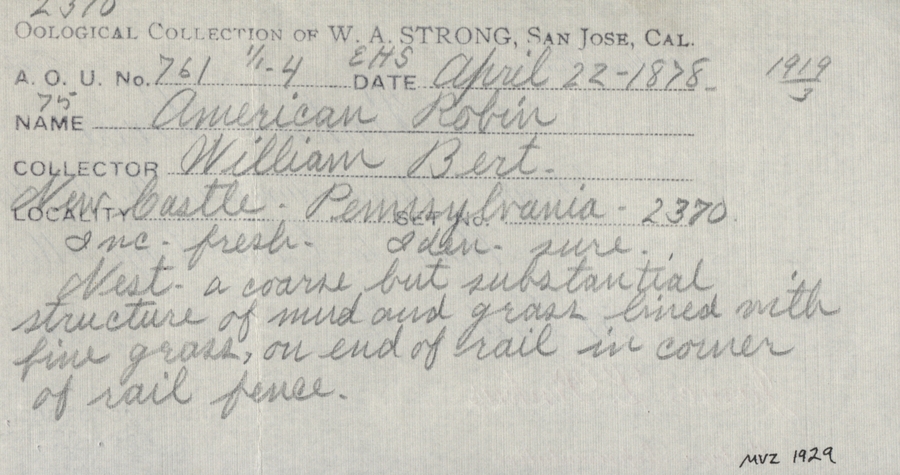 2370
OOLOGICAL COLLECTION OF W. A. STRONG, SAN JOSE, CAL.
A. O. U. No. 761 1/1-4 EHS DATE April 22-1878 1919/3
75
NAME American Robin
COLLECTOR William Bert.
LOCALITY New Castle - Pennsylvania - SET No. 2370.
Inc - fresh - Iden - sure.
Nest - a coarse but substantial
structure of mud and grass lined with
fine grass, on end of rail in corner
of rail fence.
MVZ 1929